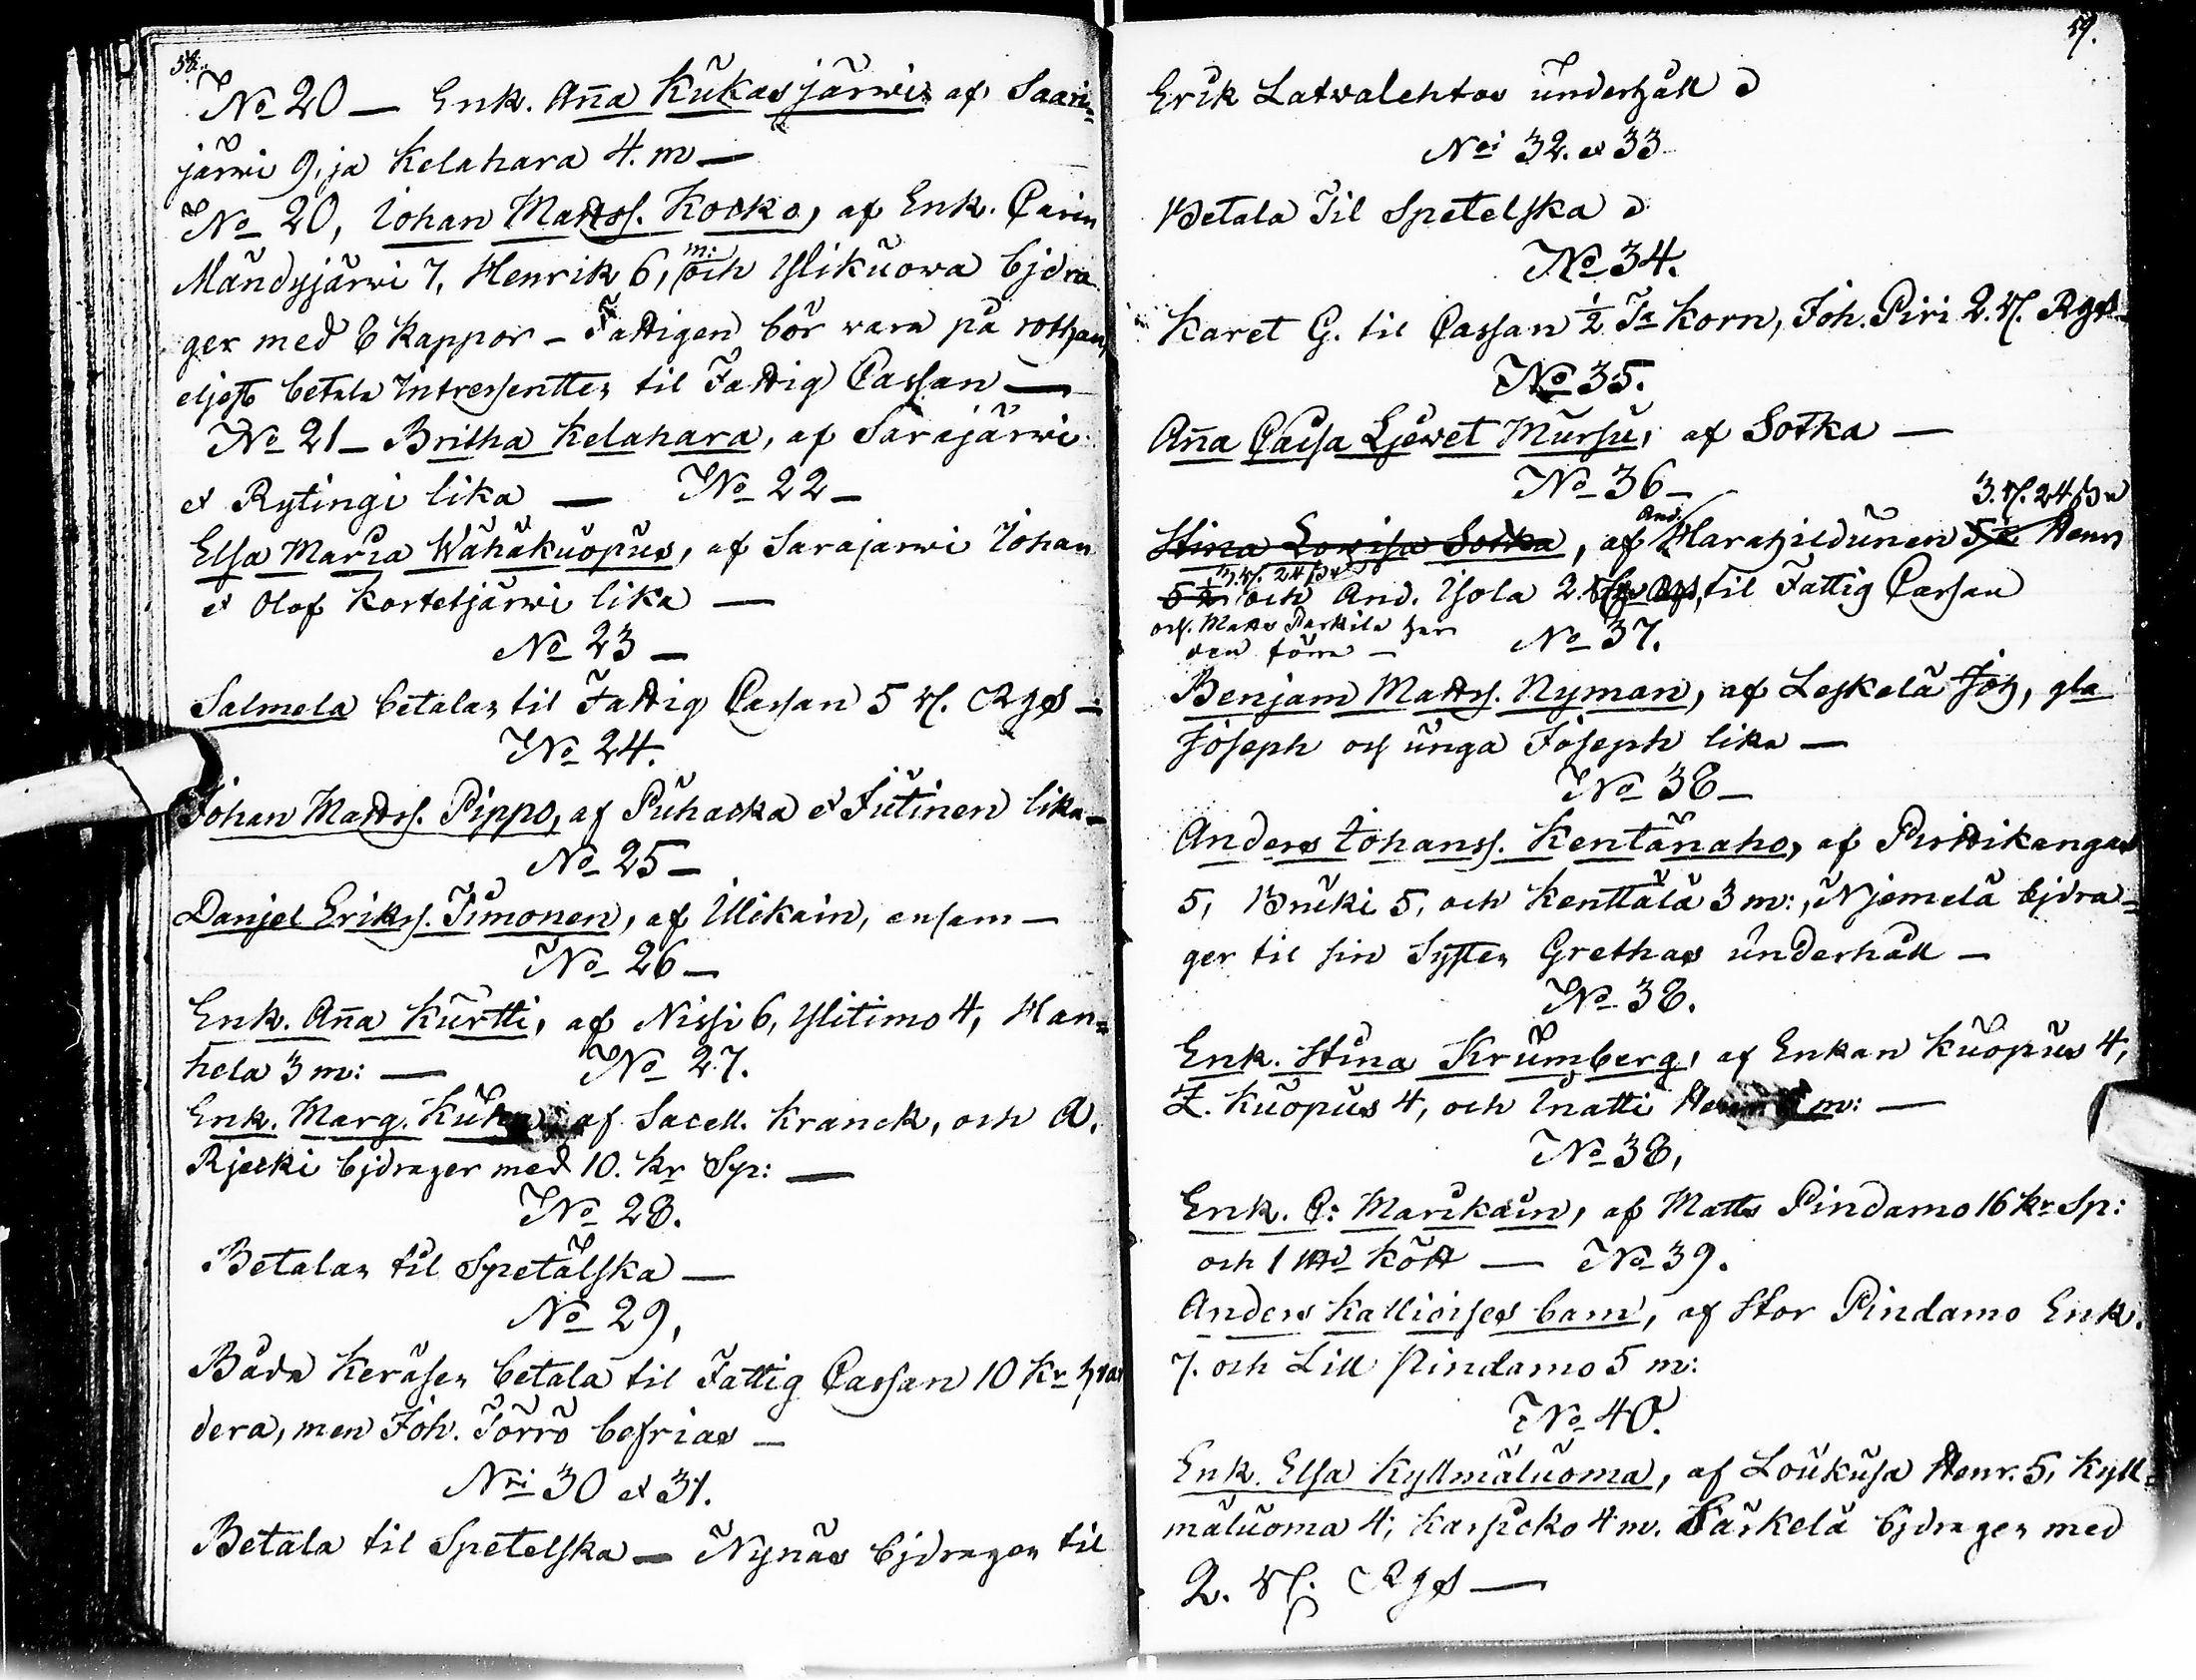 58.
No 20 — Enk. Anna Kukasjärwis af Saari=
järwi 9, ja Kelahara 4. m —
No 20, Johan Mattss. Kocko, af Enk. Carin
Mändyjärwi 7, Henrik 6, m: och Ylikuowa bjdra
ger med 6 kappor – Fattigen bör wara på rothan,
eljest betala Intressenter til Fattig Cassan —
No 21 – Britha Kelahara, af Sarajärwi
et Rytingi lika — No 22 –
Elsa Maria Wähäkuopus, af Sarajarwi Johan
et Olof Korteljärwi lika —
No 23 –
Salmela betalar til Fattig Cassan 5 rf. Rgs –
No 24.
Johan Mattss. Pippo, af Puhacka et Jutinen lika –
No 25 –
Danjel Erikss. Timonen, af Ulikain, ensam –
No 26 –
Enk. Anna Kurtti, af Nissi 6, Ylitimo 4, Han=
hela 3 m: — No 27.
Enk. Marg. af Sacell. Kranck, och A.
Rjecki bjdrager med 10. kr Sp: —
No 28.
Betalar til Spetälska —
No 29,
Båda Keräser betala til Fattig Cassan 10 Kr hwar
dera, men Joh. Törrö befrias —
Nri 30 et 31.
Betala til Spetelska — Nynäs bjdrager til
59.
Erik Latwalehtos underhåll
Nri 32. et 33
Betala Til Spetelska
No 34.
Karet G. til Cassan ½ Ta Korn, Joh. Piri 2. rf. Rgs –
No 35.
Anna Caisa Ljewet Mursu, af Sotka —
No 36 –
3. rf. 24
And.
Stina Lowisa Sotka, af Harahildunen Henr
24
och And. Ysola 2. til Fattig Cassan
och. Matts Parkila har No 37.
den förra –
Benjam Mattss. Nyman, af Leskelä Joh, gla
Joseph och unga Joseph lika —
No 38 –
Anders Johanss. Kentänaho, af Pirttikangas
5, Bruki 5, och Kenttälä 3 m:, Njemelä bjdra=
ger til sin Syster Grethas underhåll –
No 38.
Enk. Stina Krumberg, af Enkan Kuopus 4,
Z. Kuopus 4, och Inatti m: —
No 38,
Enk. C: Marikain, af Matts Pindamo 16 kr Sp:
och 1 kött — No 39.
Anders Kallioises barn, af Stor Pindamo Enk.
7. och Lill Pindamo 5 m:
No 40.
Enk. Elsa Kyllmäluoma, af Loukusa Henr. 5, Kyll=
mäluoma 4, Karsicko 4 m. Särkelä bjdrager med
2. rf. Rgs —